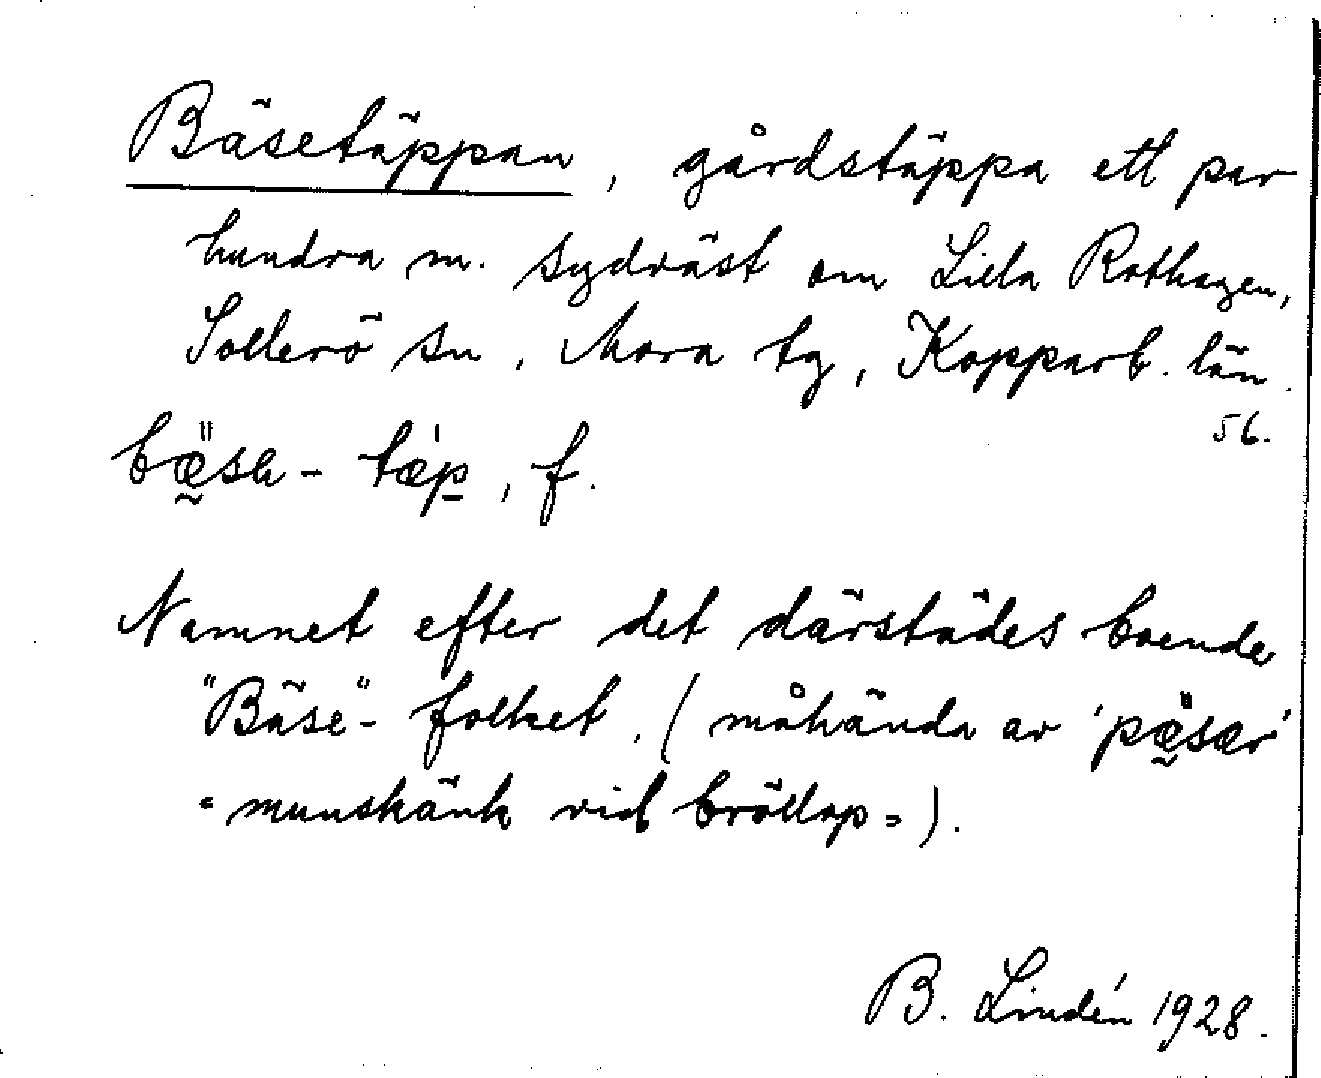 Bäsetäppan, gårdstäppa ett par
hundra m. sydväst om Lilla Rothagen,
Sollerö sn, Mora tg, Kopparb. län.
56.
bæ̰̎sa - tæ̍p̱, f.
Namnet efter det därstädes boende
"Bäse"-folket. (måhända av 'pæ̰̎sær'
= munskänk vid bröllop =).
B. Lindén 1928.